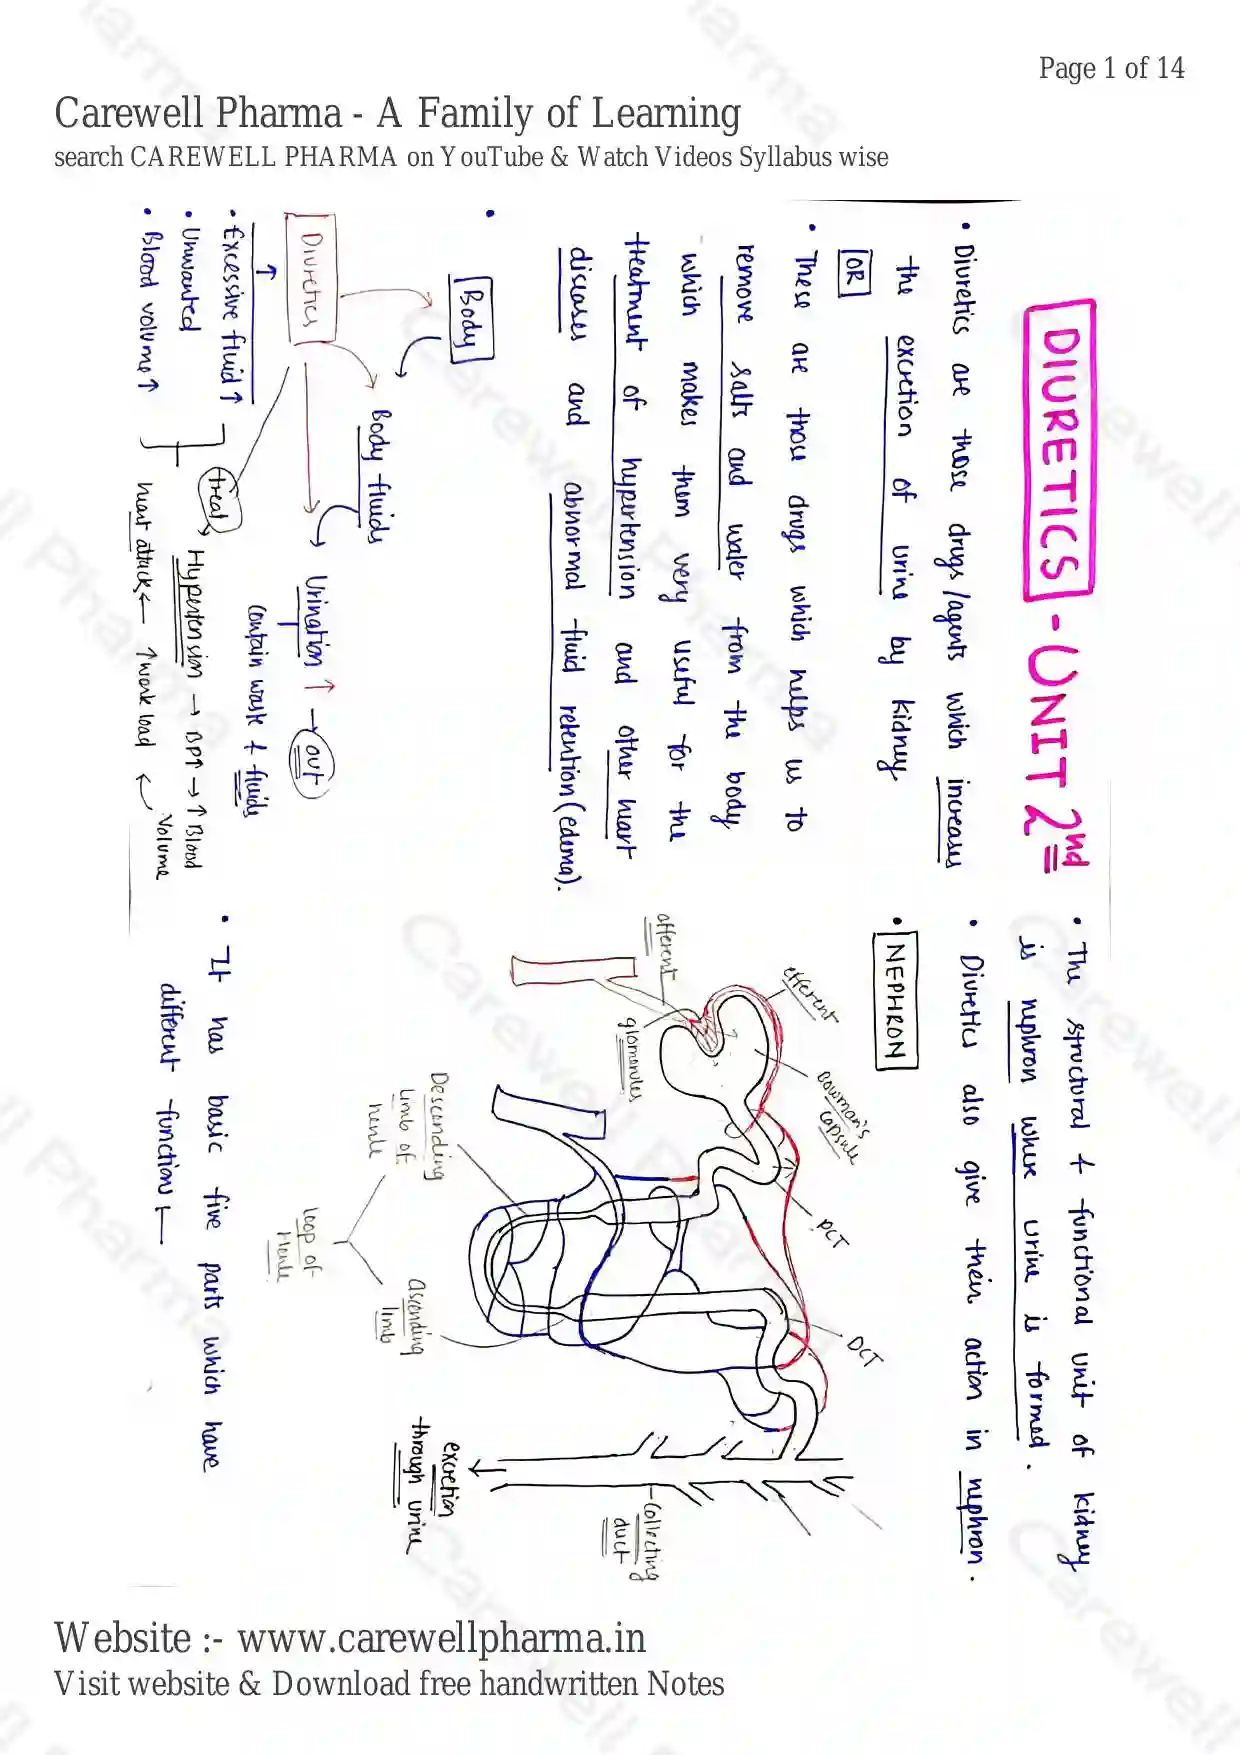 Page 1 of 14
Carewell Pharma - A Family of Learning
search CAREWELL PHARMA on YouTube & Watch Videos Syllabus wise
DIURETICS - UNIT 2nd
• Diuretics are those drugs/agents which increases
the excretion of urine by kidney.
OR
• These are those drugs which helps us to
remove salts and water from the body,
which makes them very useful for the
treatment of hypertension and other heart
diseases and abnormal fluid retention (edema).
• Body
Body fluids
Diuretics
Urination ↑ → out
contain waste & fluids
• Excessive fluid ↑
• Unwanted
• Blood volume ↑
treat
Hypertension → BP↑ → ↑ Blood
Volume
heart attack ← ↑ work load
• The structural & functional unit of kidney
is nephron where urine is formed.
• Diuretics also give their action in nephron.
• NEPHRON
efferent
afferent
glomerules
Bowman's
capsule
PCT
DCT
Descending
limb of
henle
Ascending
limb
loop of
Henle
Collecting
duct
excretion
through urine
• It has basic five parts which have
different function :-
Website :- www.carewellpharma.in
Visit website & Download free handwritten Notes
Carewell Pharma